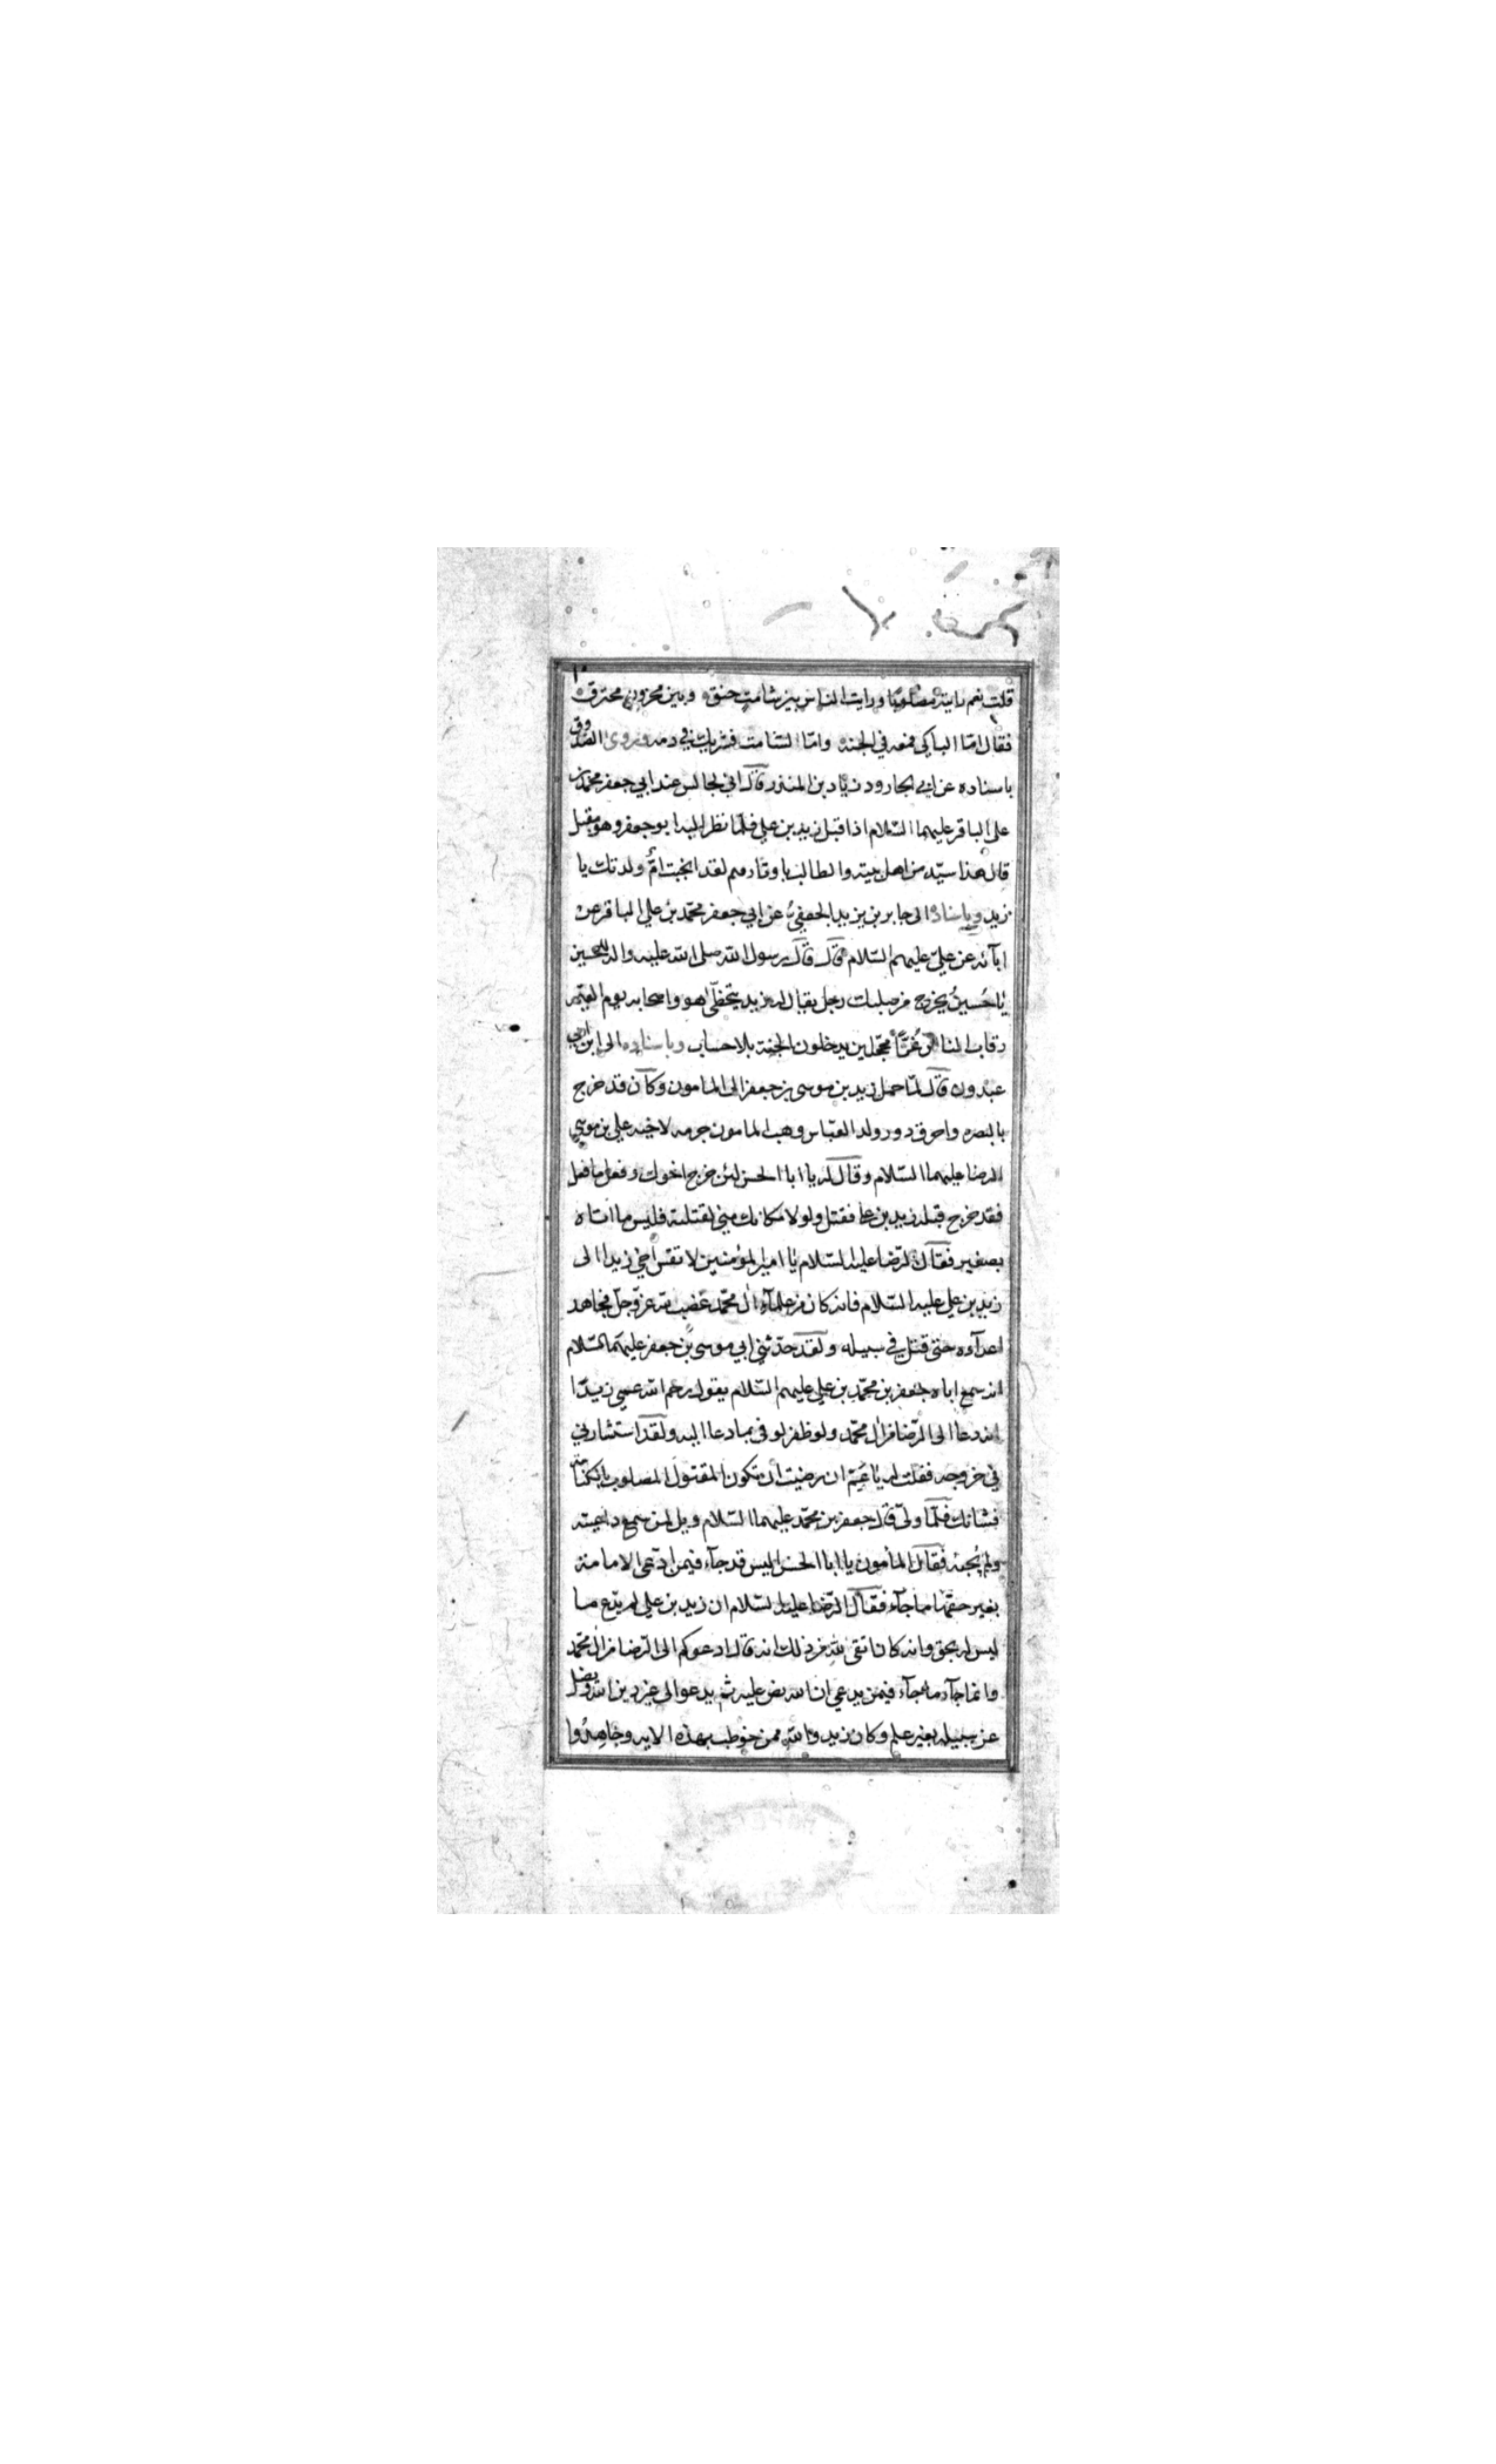 قلت نعم رايته مصلوبا ورايت الناس بين شامت حنق وبين محزون محترق
فقال اما الباكي فمعه في الجنة واما الشامت فشريك في دمه وروى الصدوق
باسناده عن ابي الجارود زياد بن المنذر قال اني لجالس عند ابي جعفر محمد بن
علي الباقر عليهما السلام اذ اقبل زيد بن علي فلما نظر اليه ابو جعفر وهو مقبل
قال هذا سيد من اهل بيته والطالب باوتارهم لقد انجبت امّ ولدتك يا
زيد وباسناده الى جابر بن يزيد الجعفي عن ابي جعفر محمد بن علي الباقر عن
ابآئه عن علي عليهم السلام قال قال رسول الله صلى الله عليه واله للحسين
يا حسين يخرج من صلبك رجل يقال له زيد يتخطّى هو واصحابه يوم القيمة
رقاب الناس غُرًّا محجّلين يدخلون الجنة بلا حساب وباسناده الى ابن ابي
عبدون قال لمّا حمل زيد بن موسى بن جعفر الى المامون وكان قد خرج
بالبصره واحرق دور ولد العبّاس وهب المامون جرمه لاخيه علي بن موسى
الرضا عليهما السّلام وقال له يا ابا الحسن لئن خرج اخوك وفعل ما فعل
فقد خرج قبله زيد بن علي فقتل ولولا مكانك مني لقتلته فليس ما اتاه
بصغير فقال الرّضا عليه السّلام يا امير المؤمنين لا تقس اخي زيدا الى
زيد بن علي عليه السّلام فانه كان من علمآء ال محمّد غضب لله عزّ وجلّ فجاهد
اعدآءه حتى قتل في سبيله ولقد حدّثني ابي موسى بن جعفر عليهما السّلام
انه سمع اباه جعفر بن محمّد بن علي عليهم السّلام يقول رحم الله عمي زيدًا
انه دعا الى الرّضا من ال محمّد ولو ظفر لوفى بما دعا اليه ولقد استشارني
في خروجه فقلت له يا عَمّ ان رضيت ان تكون المقتول المصلوب بالكناسة
فشانك فلمّا ولّى قال جعفر بن محمّد عليهما السّلام ويل لمن سمع داعيته
ولم يُجبه فقال المأمون يا ابا الحسن اليس قد جآء فيمن ادّعى الامامة
بغير حقها ما جآء فقال الرّضا عليه السّلام ان زيد بن علي لم يدّع ما
ليس له بحق وانه كان اتقى لله من ذلك انه قال ادعوكم الى الرّضا من ال محمّد
وانما جآء ما جآء فيمن يدعي ان الله نص عليه ثم يدعو الى غير دين الله ويضل
عن سبيله بغير علم وكان زيد والله ممن خوطب بهذه الايه وجاهِدُوا